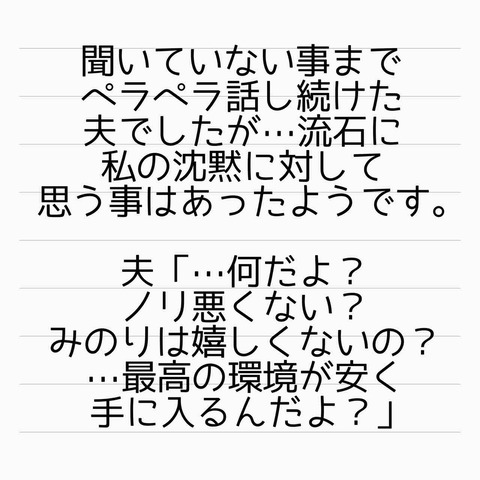 聞いていない事まで
ペラペラ話し続けた
夫でしたが…流石に
私の沈黙に対して
思う事はあったようです。
夫「…何だよ？
ノリ悪くない？
みのりは嬉しくないの？
…最高の環境が安く
手に入るんだよ？」